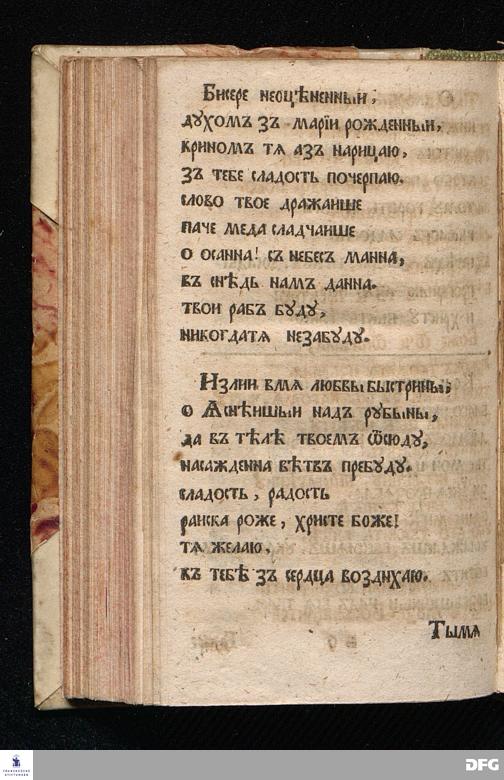 Бисере неоцѣненный;
духомъ зъ марїи рожденный,
криномъ тя азъ нарицаю,
зъ тебе сладость почерпаю.
слово твое дражаише
паче меда сладчаише
о осанна! съ небесъ манна,
въ снѣдь намъ данна.
твои рабъ буду,
никогдатя незабуду.
Излии вмя любвы быстрины,
о Ѧснѣишыи надъ рубыны,
да въ тѣлѣ твоемъ ѿсюду,
насажденна вѣтвъ пребуду.
сладость, радость
раиска роже, христе боже!
тя желаю,
къ тебѣ зъ сердца воздихаю.
Тымя
FRANCKESCHE STIFTUNGEN
DFG